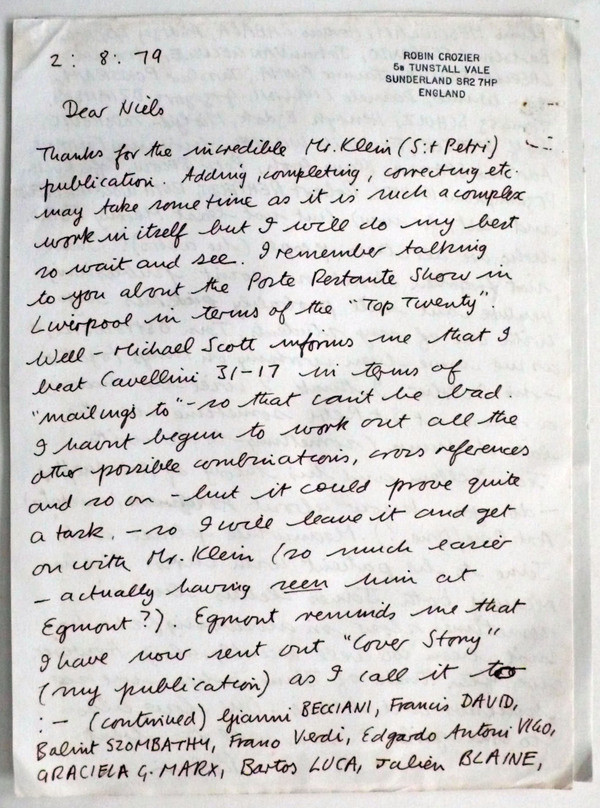 2 : 8 : 79
ROBIN CROZIER
5B TUNSTALL VALE
SUNDERLAND SR2 7HP
ENGLAND
Dear Niels
Thanks for the incredible Mr. Klein (S:t Petri)
publication. Adding, completing, correcting etc.
may take some time as it is such a complex
work in itself but I will do my best
so wait and see. I remember talking
to you about the Poste Restante Show in
Liverpool in terms of the "Top Twenty".
Well - Michael Scott informs me that I
beat Cavellini 31-17 in terms of
"mailings to" - so that can't be bad.
I havnt begun to work out all the
other possible combinations, cross references
and so on - but it could prove quite
a task. - so I will leave it and get
on with Mr. Klein (so much easier
- actually having seen him at
Egmont ?). Egmont reminds me that
I have now sent out "Cover Story"
(my publication) as I call it to
:- (continued) Gianni BECCIANI, Francis DAVID,
Balint SZOMBATHY, Frano Verdi, Edgardo Antoni VIGO,
GRACIELA G. MARX, Bartos LUCA, Julien BLAINE,